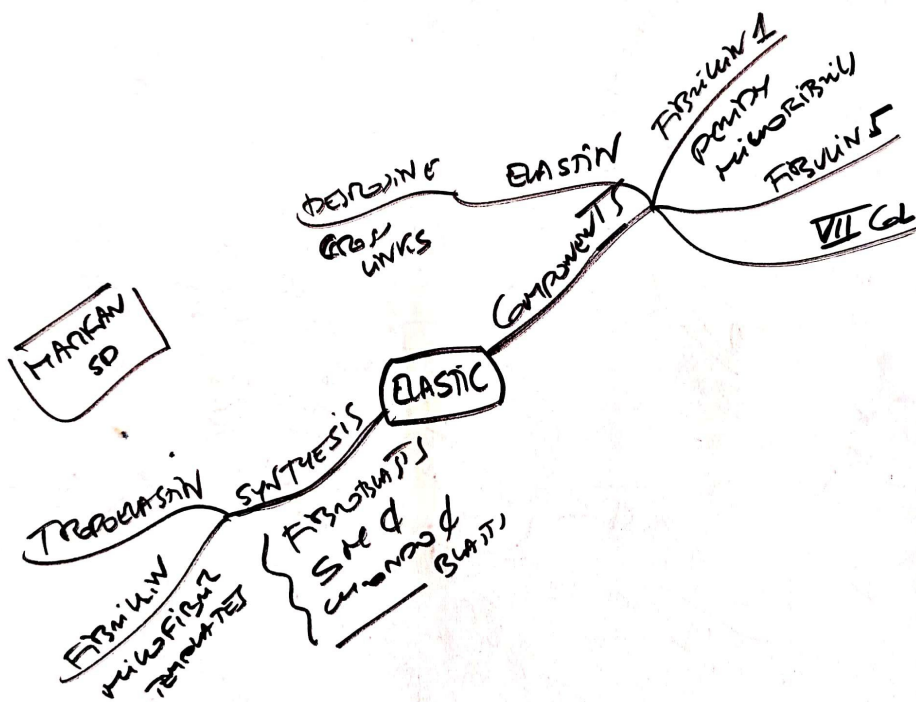 ELASTIC
COMPONENTS
ELASTIN
DESMOSINE
CROSS
LINKS
FIBRILLIN 1
MICROFIBRILS
FIBULIN 5
VII COL
SYNTHESIS
TROPOELASTIN
FIBRILLIN
MICROFIBRIL
TEMPLATES
FIBROBLASTS
SM ¢
CHONDRO ¢
BLASTS
MARFAN
SD